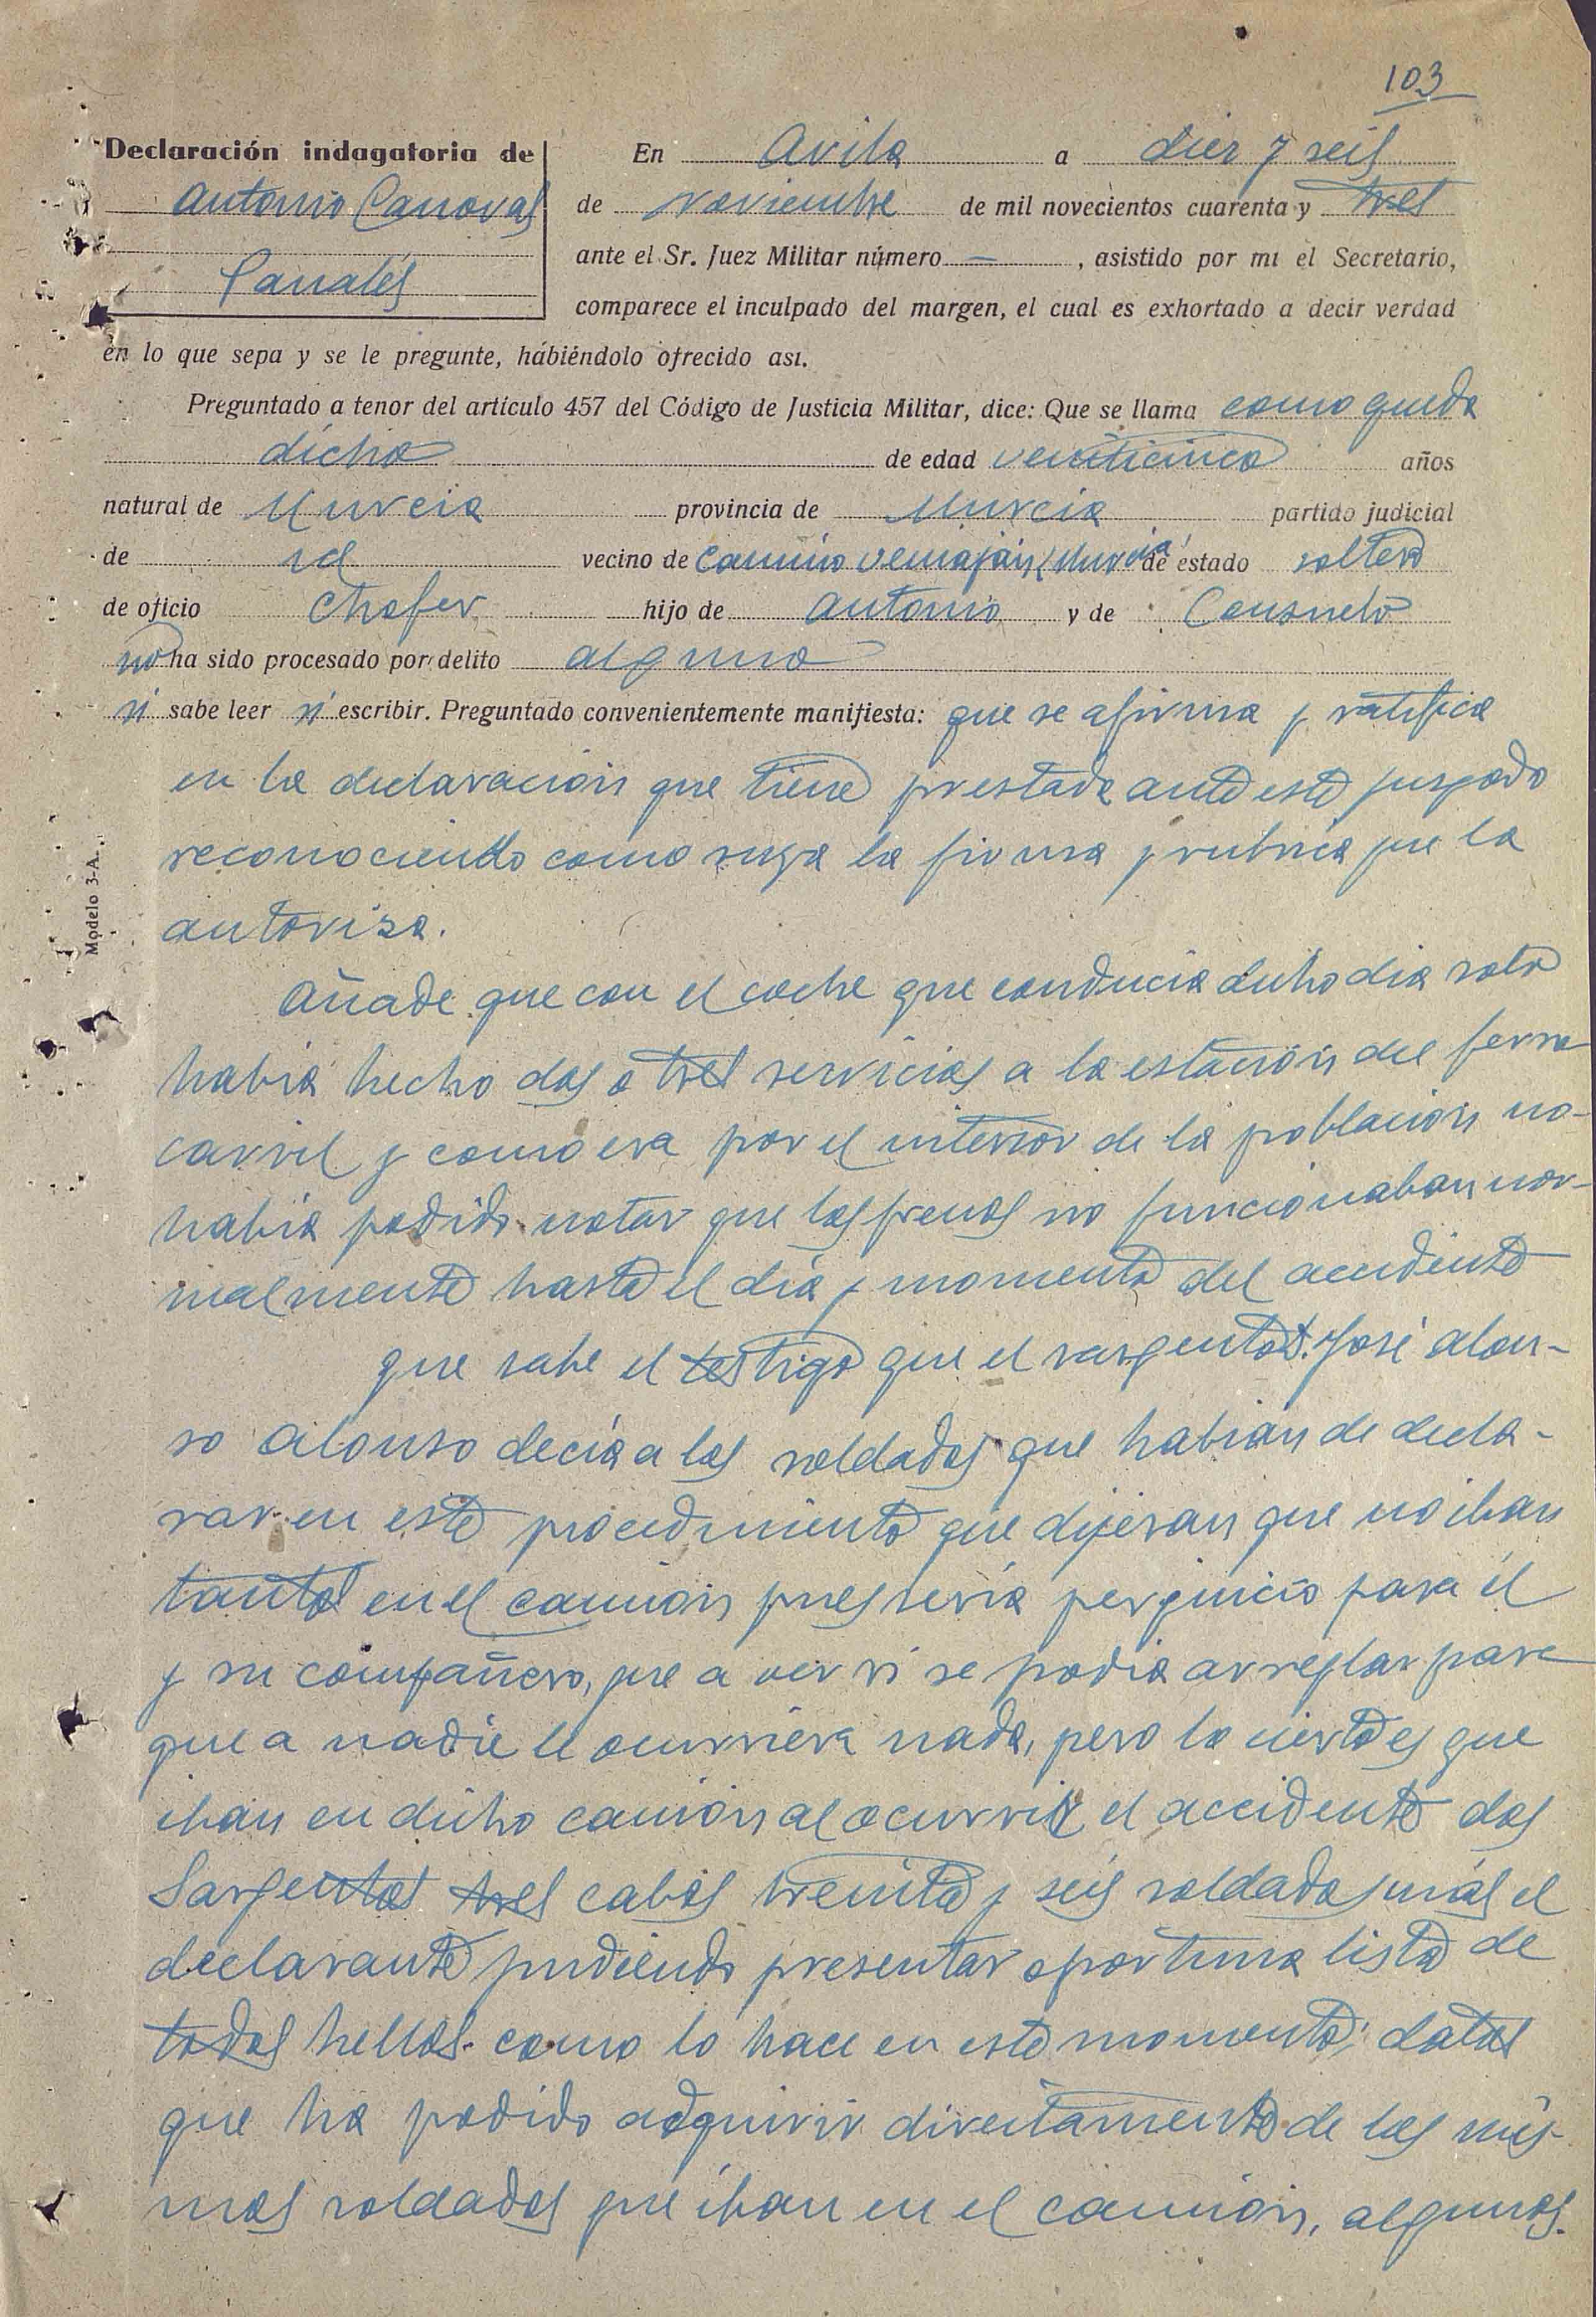 103
Declaración indagatoria de
Antonio Canovas
Canales
En Avila a diez y seis
de noviembre de mil novecientos cuarenta y tres
ante el Sr. Juez Militar número — , asistido por mi el Secretario,
comparece el inculpado del margen, el cual es exhortado a decir verdad
en lo que sepa y se le pregunte, habiéndolo ofrecido asi.
Preguntado a tenor del articulo 457 del Código de Justicia Militar, dice: Que se llama como queda
dicho de edad veinticinco años
natural de Murcia provincia de Murcia partido judicial
de id vecino de Camino (Murcia) de estado soltero
de oficio Chofer hijo de Antonio y de Consuelo
no ha sido procesado por delito alguno
si sabe leer si escribir. Preguntado convenientemente manifiesta: que se afirma y ratifica
en la declaracion que tiene prestada ante este juzgado
reconociendo como suya la firma y rubrica que la
autoriza.
Añade que con el coche que conducia dicho dia solo
habia hecho dos o tres servicios a la estación del ferro
carril y como era por el interior de la poblacion no-
habia podido notar que los frenos no funcionaban nor-
malmente hasta el dia y momento del accidente
que sabe el testigo que el sargento D. José Alon-
so Alonso decia a los soldados que habian de decla-
rar en este procedimiento que dijeran que no iban
tantos en el camion pues seria perjuicio para él
y su compañero, que a ver si se podia arreglar para
que a nadie le ocurriera nada, pero lo cierto es que
iban en dicho camion al ocurrir el accidente dos
Sargentos tres cabos treinta y seis soldados más el
declarante pudiendo presentar oportuna lista de
todos hellos como lo hace en este momento; datos
que ha podido adquirir directamente de los mis-
mos soldados que iban en el camion, algunos.
Modelo 3-A.